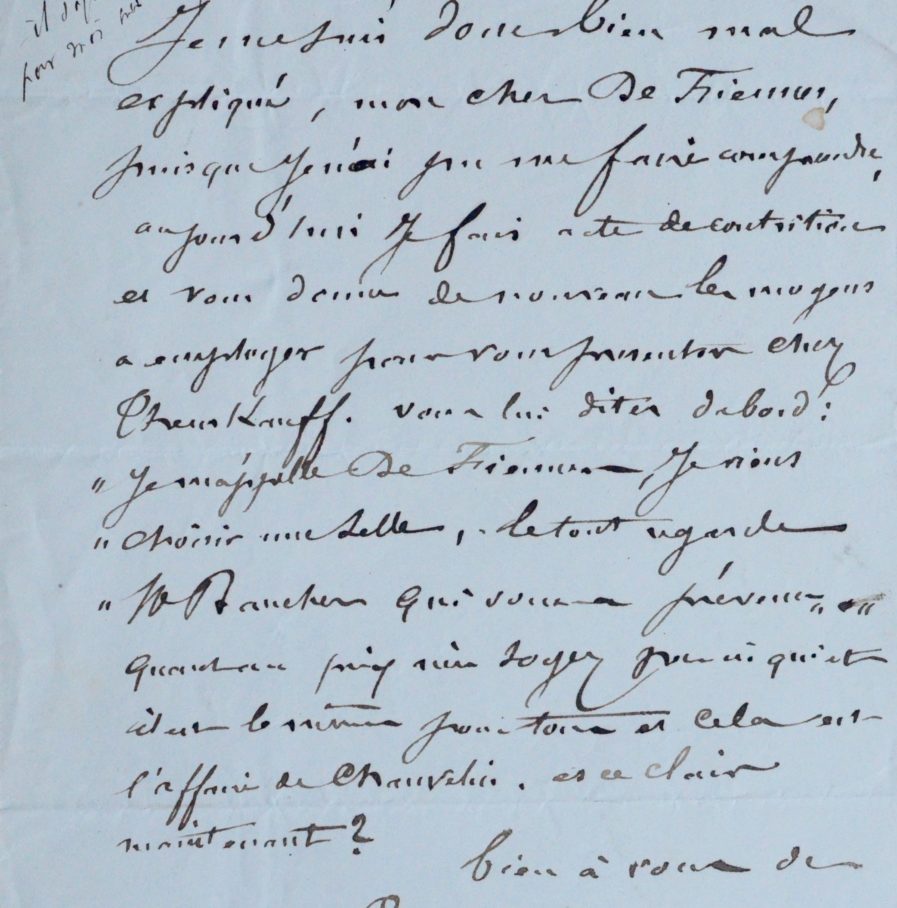 il
pour moi
Je me suis donc bien mal
expliqué, mon cher De Fiennes,
puisque je n'ai pu me faire comprendre,
aujourd'hui je fais acte de contrition
et vous donne de nouveau les moyens
a employer pour vous presenter chez
vous lui dites dabord :
" Je m'appelle De Fiennes, Je viens
" choisir une selle, le tout regarde
" Mr Baucher qui vous a prévenu "
quant au prix n'en soyez pas inquiet
il est le même pour tous et cela est
l'affaire de Chauvelin. es ce clair
maintenant ?
bien à vous de